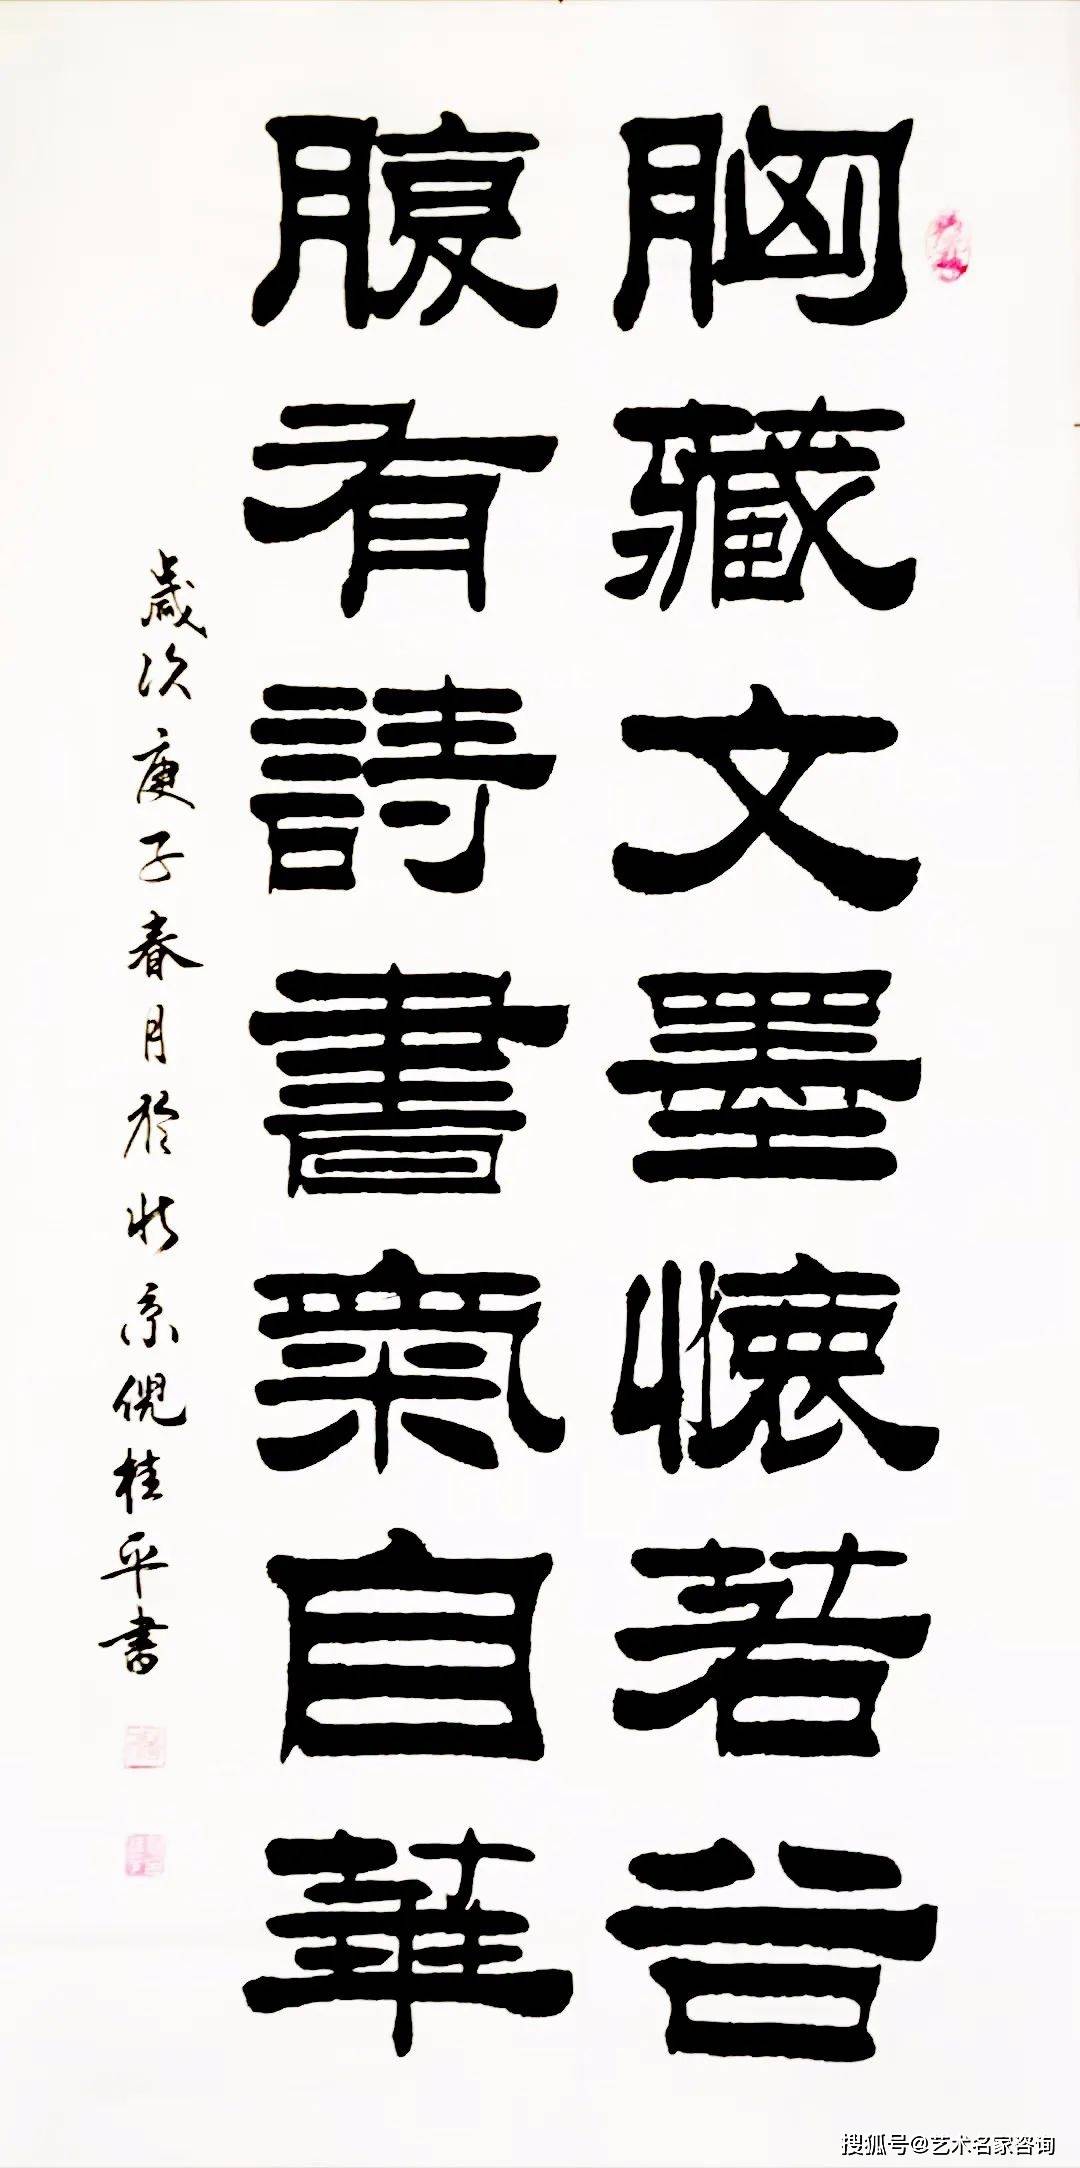 胸藏文墨懷若谷
腹有詩書氣自華
歲次庚子春月於北京倪桂平書
搜狐号@艺术名家咨询